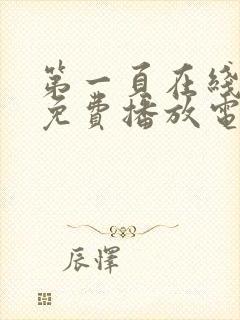 第一頁在綫
免費播放電
辰懌